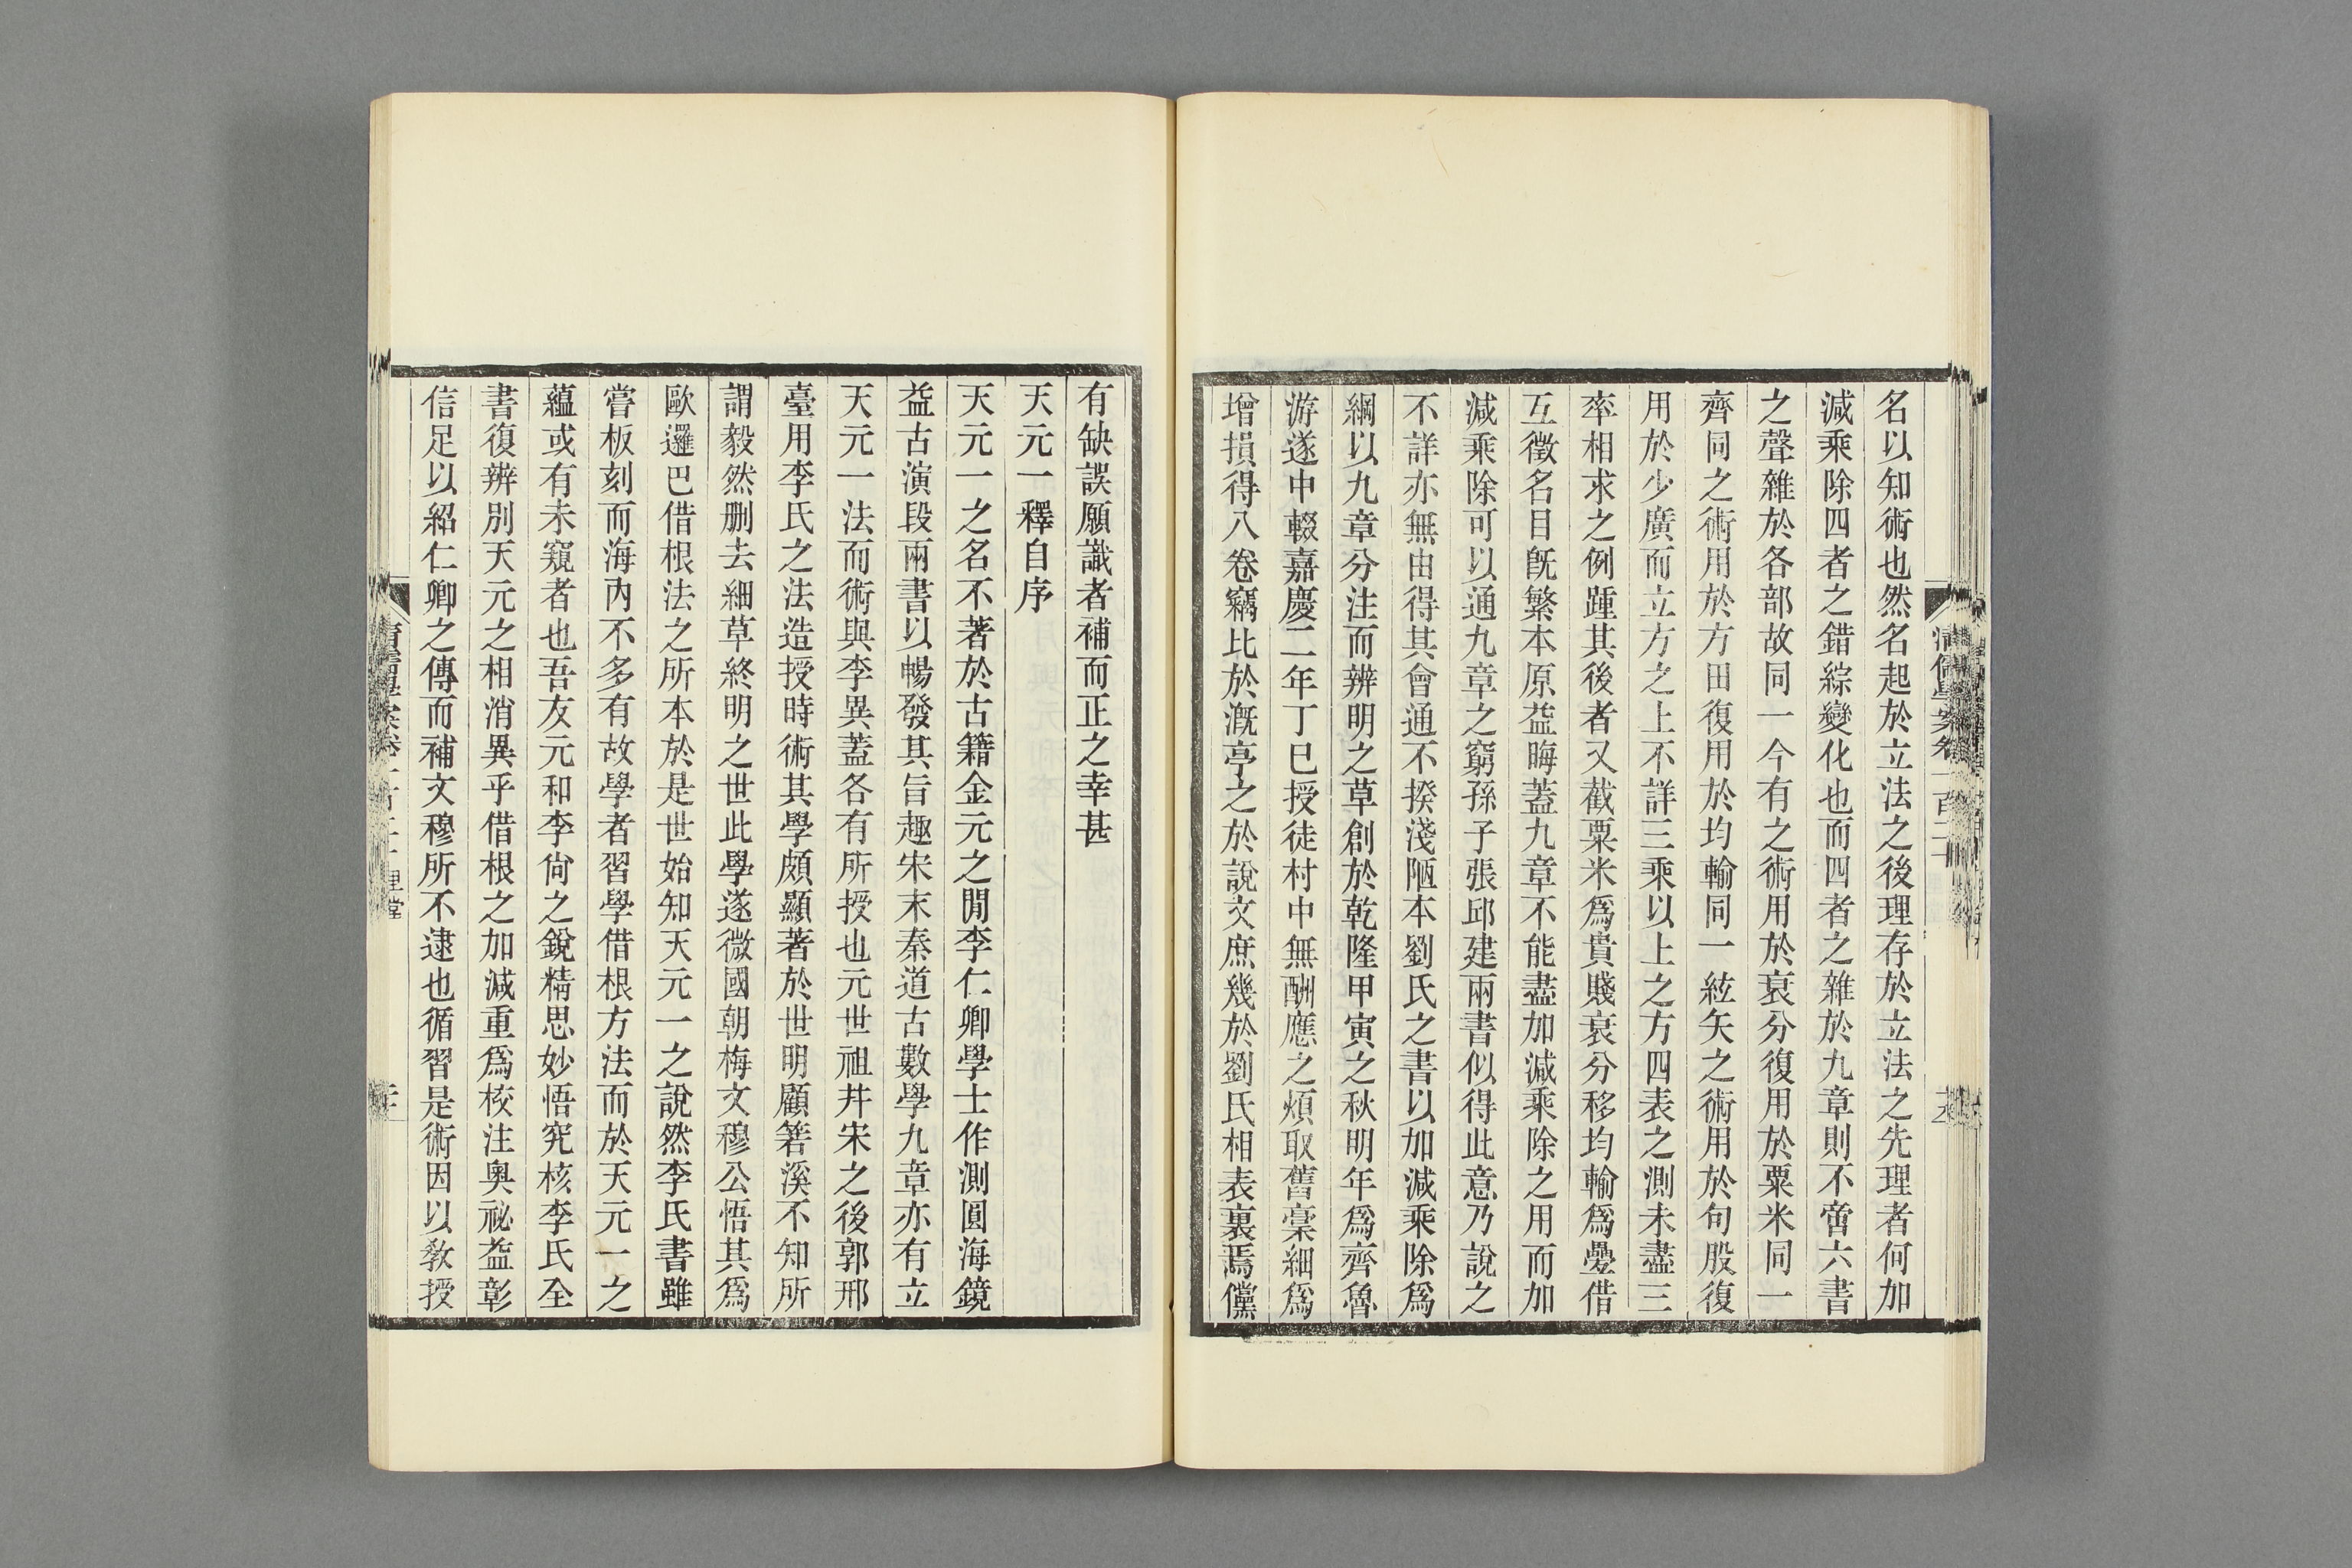 名以知術也然名起於立法之後理存於立法之先理者何加
減乘除四者之錯綜變化也而四者之雜於九章則不啻六書
之聲雜於各部故同一今有之術用於衰分復用於粟米同一
齊同之術用於方田復用於均輸同一絃矢之術用於句股復
用於少廣而立方之上不詳三乘以上之方四表之測未盡三
率相求之例踵其後者又截粟米爲貴賤衰分移均輸爲疊借
互徵名目旣繁本原益晦蓋九章不能盡加減乘除之用而加
減乘除可以通九章之窮孫子張邱建兩書似得此意乃說之
不詳亦無由得其會通不揆淺陋本劉氏之書以加減乘除爲
綱以九章分注而辨明之草創於乾隆甲寅之秋明年爲齊魯
游遂中輟嘉慶二年丁巳授徒村中無酬應之煩取舊稾細爲
增損得八卷竊比於漑亭之於說文庶幾於劉氏相表裏焉儻
有缺誤願識者補而正之幸甚
天元一釋自序
天元一之名不著於古籍金元之閒李仁卿學士作測圓海鏡
益古演段兩書以暢發其旨趣宋末秦道古數學九章亦有立
天元一法而術與李異蓋各有所授也元世祖幷宋之後郭邢
臺用李氏之法造授時術其學頗顯著於世明顧箬溪不知所
謂毅然刪去細草終明之世此學遂微國朝梅文穆公悟其爲
歐邏巴借根法之所本於是世始知天元一之說然李氏書雖
嘗板刻而海內不多有故學者習學借根方法而於天元一之
蘊或有未窺者也吾友元和李尙之銳精思妙悟究核李氏全
書復辨別天元之相消異乎借根之加減重爲校注奧祕益彰
信足以紹仁卿之傳而補文穆所不逮也循習是術因以敎授